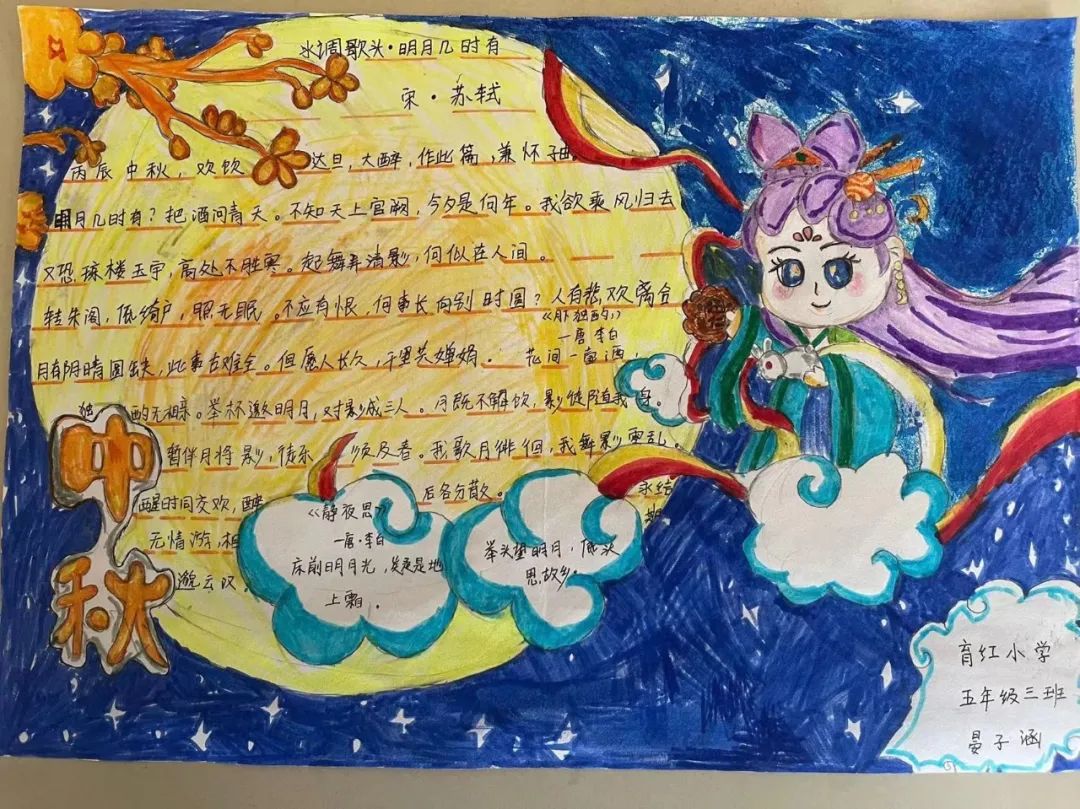 水调歌头·明月几时有
宋·苏轼
丙辰中秋，欢饮达旦，大醉，作此篇，兼怀子由。
明月几时有？把酒问青天。不知天上宫阙，今夕是何年。我欲乘风归去
又恐琼楼玉宇，高处不胜寒。起舞弄清影，何似在人间。
转朱阁，低绮户，照无眠。不应有恨，何事长向别时圆？人有悲欢离合
《月下独酌》
—唐 李白
月有阴晴圆缺，此事古难全。但愿人长久，千里共婵娟。 花间一壶酒，
独酌无相亲。举杯邀明月，对影成三人。月既不解饮，影徒随我身。
暂伴月将影，行乐须及春。我歌月徘徊，我舞影零乱。
醒时同交欢，醉后各分散。 永结
无情游，相期
邈云汉。
《静夜思》
—唐·李白
床前明月光，疑是地
上霜。
举头望明月，低头
思故乡。
中秋
育红小学
五年级三班
晏子涵